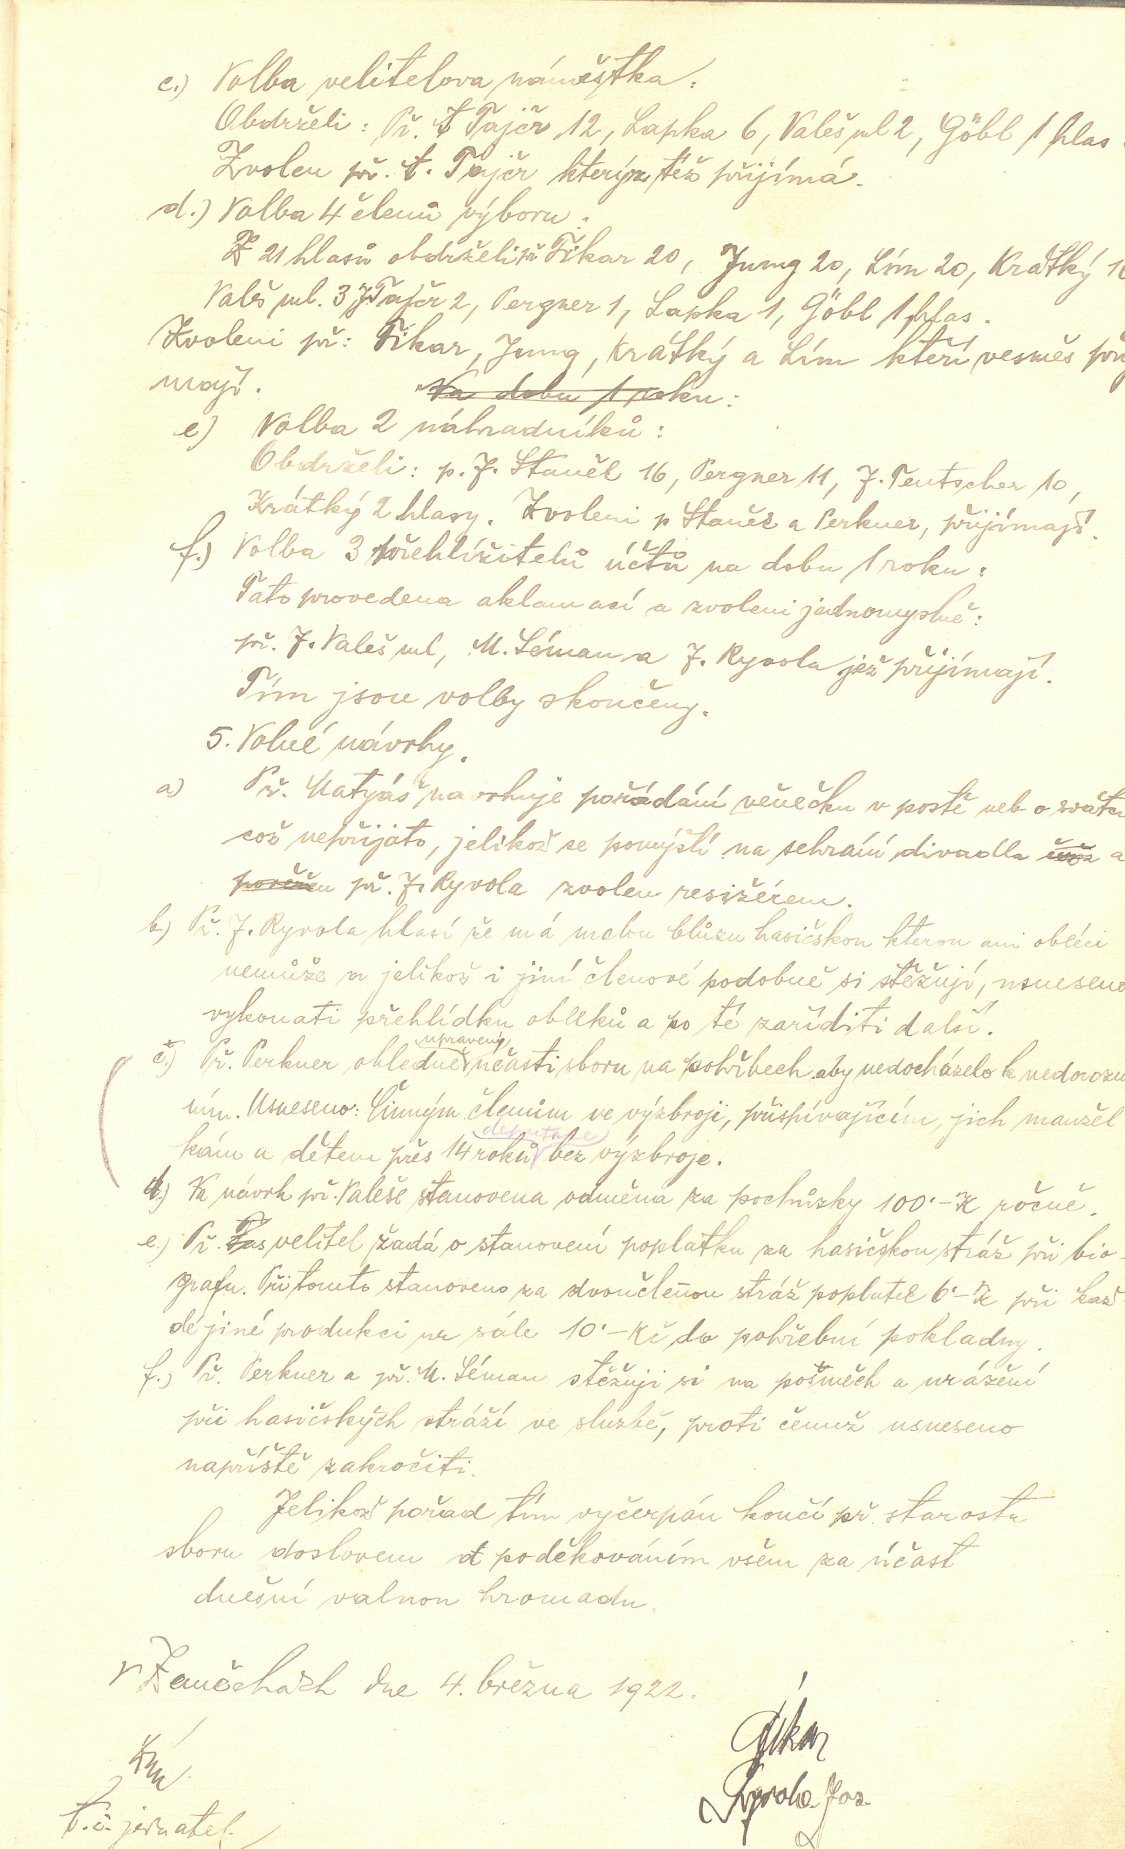 c.) Volba velitelova náměstka:
Obdrželi: Př. t Tajčr 12, Lapka 6, Valeš ml 2, Göbl 1 hlas.
Zvolen př. t. Tajčr který též přijímá.
d.) Volba 4 členů výboru:
Z 21 hlasů obdrželi př Tikar 20, Jung 20, Lím 20, Krátký 16
Valeš ml. 3 J. Tajčr 2, Pergner 1, Lapka 1, Göbl 1 hlas.
Zvoleni př: Tikar, Jung, Krátký a Lím kteří vesměs při
mají. Na dobu 1 roku:
e) Volba 2 náhradníků:
Obdrželi: p. J. Staněk 16, Pergner 11, J. Teutscher 10,
Krátký 2 hlasy. Zvoleni p Staněk a Perkner, přijímají.
f.) Volba 3 přehlížitelů účtů na dobu 1 roku:
Tato provedena aklamací a zvoleni jednomyslně:
př. J. Valeš ml, M. Léman a J. Ryvola jež přijímají.
Tím jsou volby skončeny.
5. Volné návrhy.
a) Př. Matyáš navrhuje pořádání věnečku v postě neb o svátc
což nepřijato, jelikož se pomýšlí na sehrání divadla a
př. J. Ryvola zvolen resižérem.
b.) Př. J. Ryvola hlasí že má malou blůzu hasičskou kterou ani obléci
nemůže a jelikož i jiní členové podobně si stěžují, usneseno
vykonati přehlídku obleků a po té zaříditi další.
upravený
č.) Př. Perkner ohledně účasti sboru na pohřbech aby nedocházelo k nedorozu
ním. Usneseno: Činným členům ve výzbroji, přispívajícím, jich manžel
deputace
kám a dětem přes 14 roků bez výzbroje.
d.) Na návrh př. Valeše stanovena odměna za pochůzky 100·– K ročně.
e.) Př. velitel žadá o stanovení poplatku za hasičskou stráž při bio-
grafu. Při tomto stanoveno za dvoučlenou stráž poplatek 6·– K při kaž-
dé jiné produkci na sále 10·– Kč do pohřební pokladny.
f.) Př. Perkner a př. M. Léman stěžuji si na pošměch a urážení
při hasičských stráží ve službě, proti čemuž usneseno
napříště zakročiti.
Jelikož pořad tím vyčerpán končí př. starosta
sboru doslovem a poděkováním všem za účast
dnešní valnou hromadu.
V Žaněchách dne 4. března 1922.
Tikar
Lím
Ryvola Jos.
t.č. jednatel.